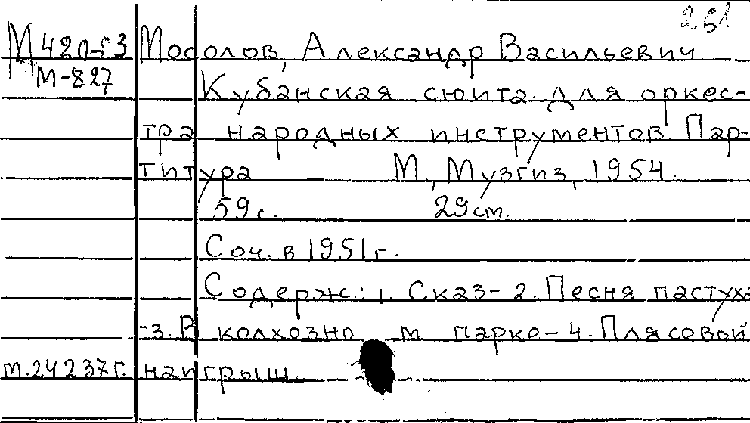 261
М 420-г3 Мосолов, Александр Васильевич
М-827
Кубанская сюита для оркес-
тра народных инструментов. Пар-
титура М., Музгиз, 1954.
59 с. 29 см.
Соч. в 1951 г.
Содерж.: 1. Сказ- 2. Песня пастуха
-3. В колхозно м парке- 4. Плясовой
м.24237г. наигрыш.